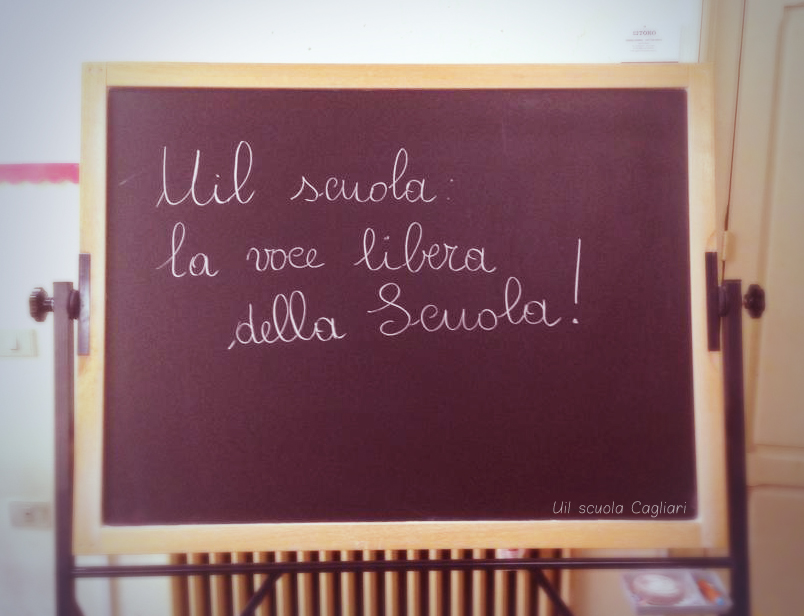 Uil scuola:
la voce libera
della Scuola!
Uil scuola Cagliari